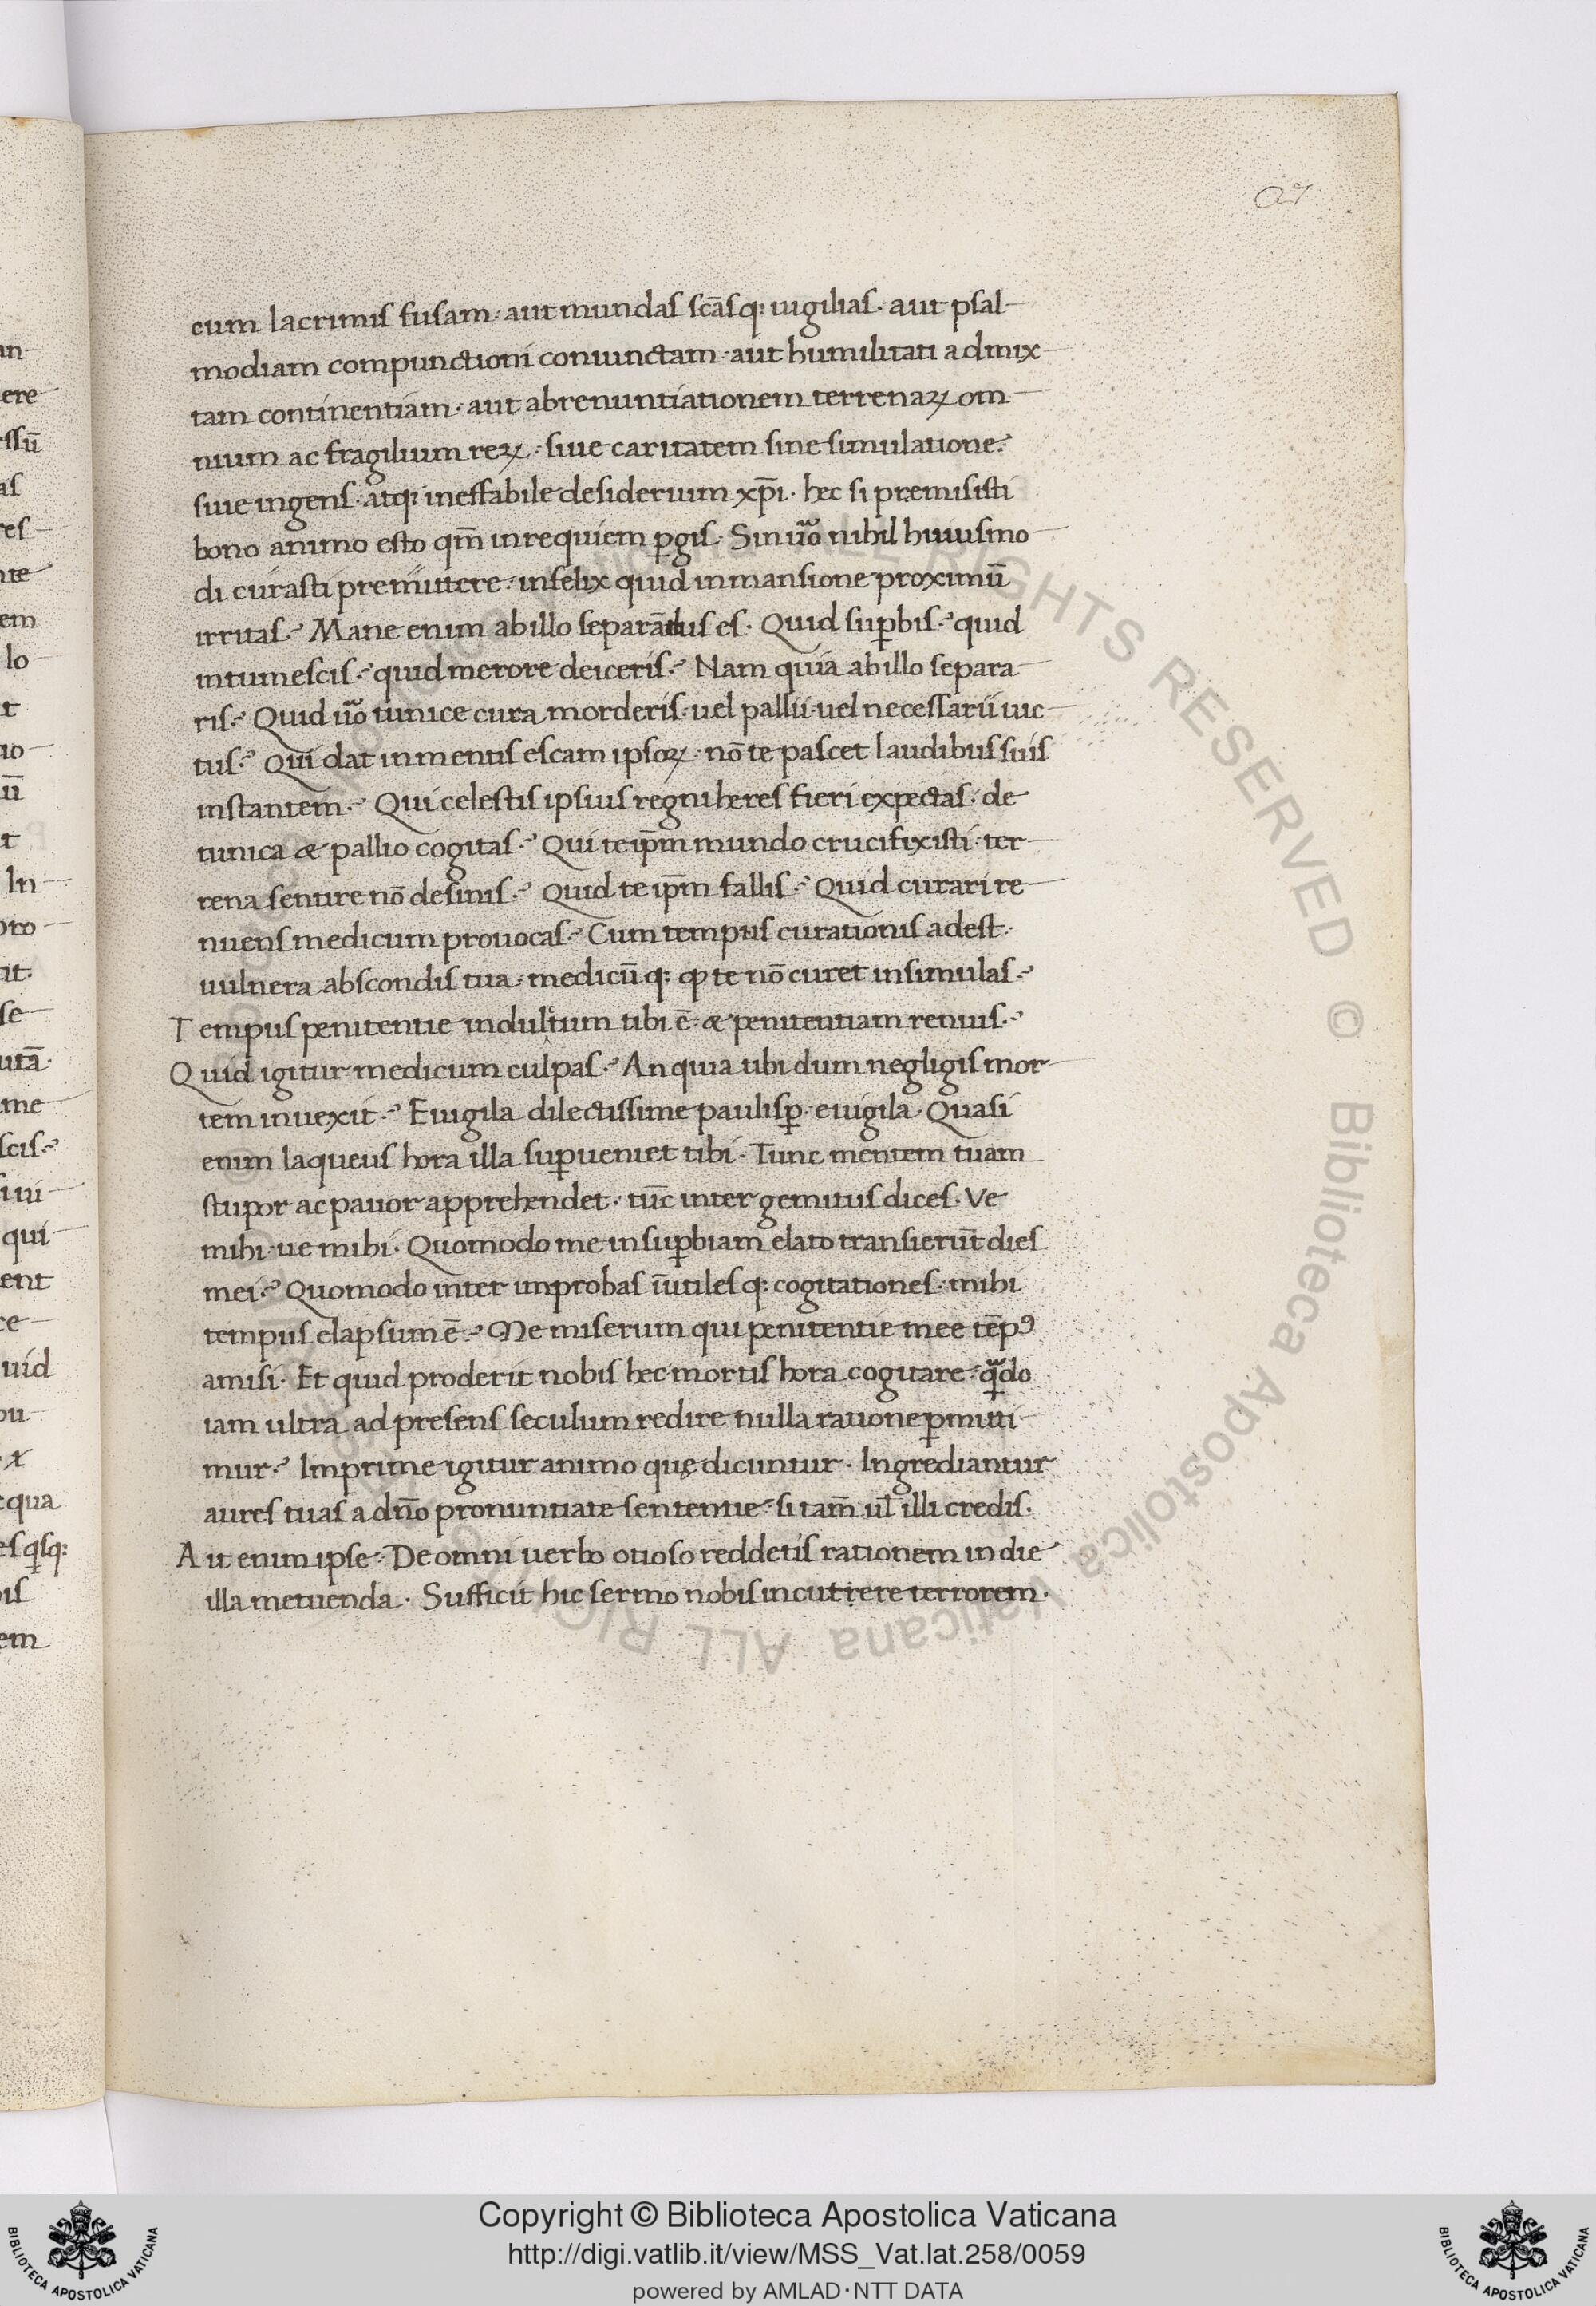 27
cum lacrimis fusam · aut mundas scāsq; uigilias · aut psal-
modiam compunctioni coniunctam · aut humilitati admix-
tam continentiam · aut abrenuntiationem terrenaꝝ om-
nium ac fragilium reꝝ · siue caritatem sine simulatione ·
siue ingens · atq; ineffabile desiderium xp̄i · hec si premisisti
bono animo esto qm̄ in requiem ꝑgis · Sin uo nihil huiusmo-
di curasti premittere · infelix quid in mansione proximū
irritas? Mane enim ab illo separatus es · Quid suꝑbis? quid
intumescis? quid merore deiceris? Nam quia ab illo separa-
ris? Quid uo tunice cura morderis · uel pallii · uel necessarii uic-
tus? Qui dat iumentis escam ipsoꝝ · nō te pascet laudibus suis
instantem? Qui celestis ipsius regni heres fieri expectas · de
tunica & pallio cogitas? Qui teip̄m mundo crucifixisti · ter-
rena sentire nō desinis? Quid te ip̄m fallis? Quid curari re-
nuens medicum prouocas? Cum tempus curationis adest ·
uulnera abscondis tua · medicūq; ꝙ te nō curet insimulas?
Tempus penitentie indultum tibi ē · & penitentiam renuis?
Quid igitur medicum culpas? An quia tibi dum negligis mor-
tem inuexit? Euigila dilectissime paulisꝑ · euigila · Quasi
enim laqueus hora illa suꝑueniet tibi · Tunc mentem tuam
stupor ac pauor apprehendet · tūc inter gemitus dices · Ve
mihi · ue mihi · Quomodo me in suꝑbiam elato transierūt dies
mei? Quomodo inter improbas īutilesq; cogitationes · mihi
tempus elapsum ē? Me miserum qui penitentie mee tēpꝰ
amisi · Et quid proderit nobis hec mortis hora cogitare · qdo
iam ultra ad presens seculum redire nulla ratione ꝑmitti-
mur? Imprime igitur animo quę dicuntur · Ingrediantur
aures tuas a dn̄o pronuntiate sententie · si tam̄ ul̄ illi credis ·
Ait enim ipse · De omni uerbo otioso reddetis rationem in die
illa metuenda · Sufficit hic sermo nobis incutere terrorem ·
© Biblioteca Apostolica Vaticana ALL RIGHTS RESERVED
Copyright © Biblioteca Apostolica Vaticana
http://digi.vatlib.it/view/MSS_Vat.lat.258/0059
powered by AMLAD·NTT DATA
BIBLIOTECA APOSTOLICA VATICANA
BIBLIOTECA APOSTOLICA VATICANA